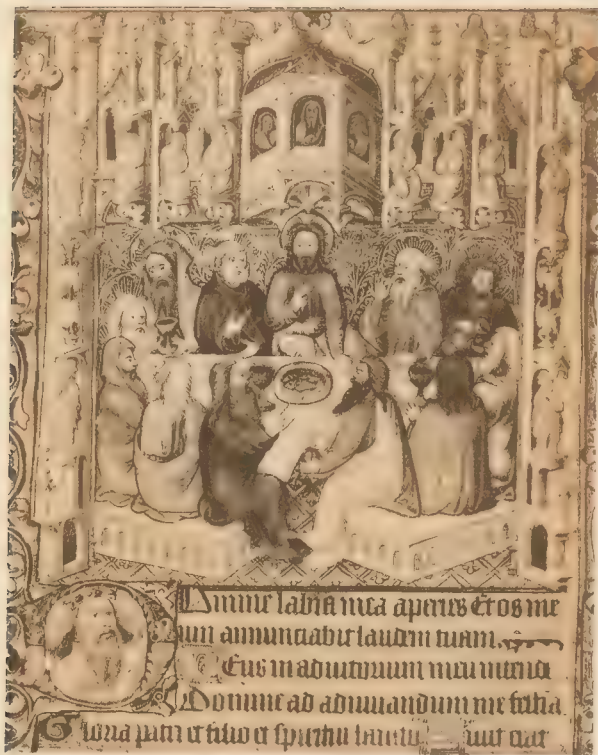 Domine labia mea aperies Et os me
um annunciabit laudem tuam.
Deus in adiutorium meū intende
Domine ad adiuuandum me festina.
Gloria patri et filio et spiritui sancto sicut erat